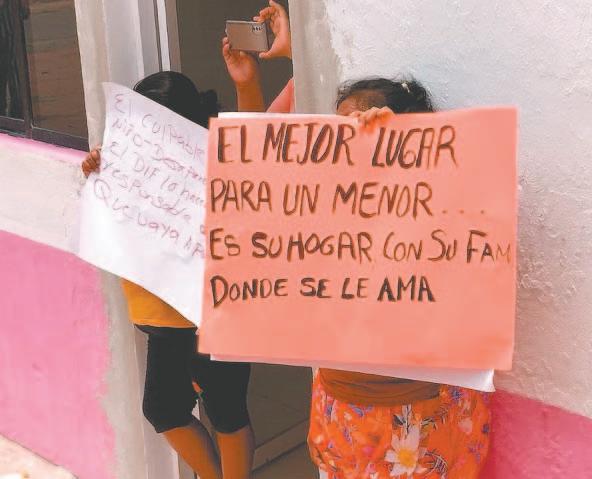 El Culpable
Niño-Desapare
El DIF lo hace
responsable
Que vaya A
EL MEJOR LUGAR
PARA UN MENOR...
ES SU HOGAR CON SU FAM
DONDE SE LE AMA